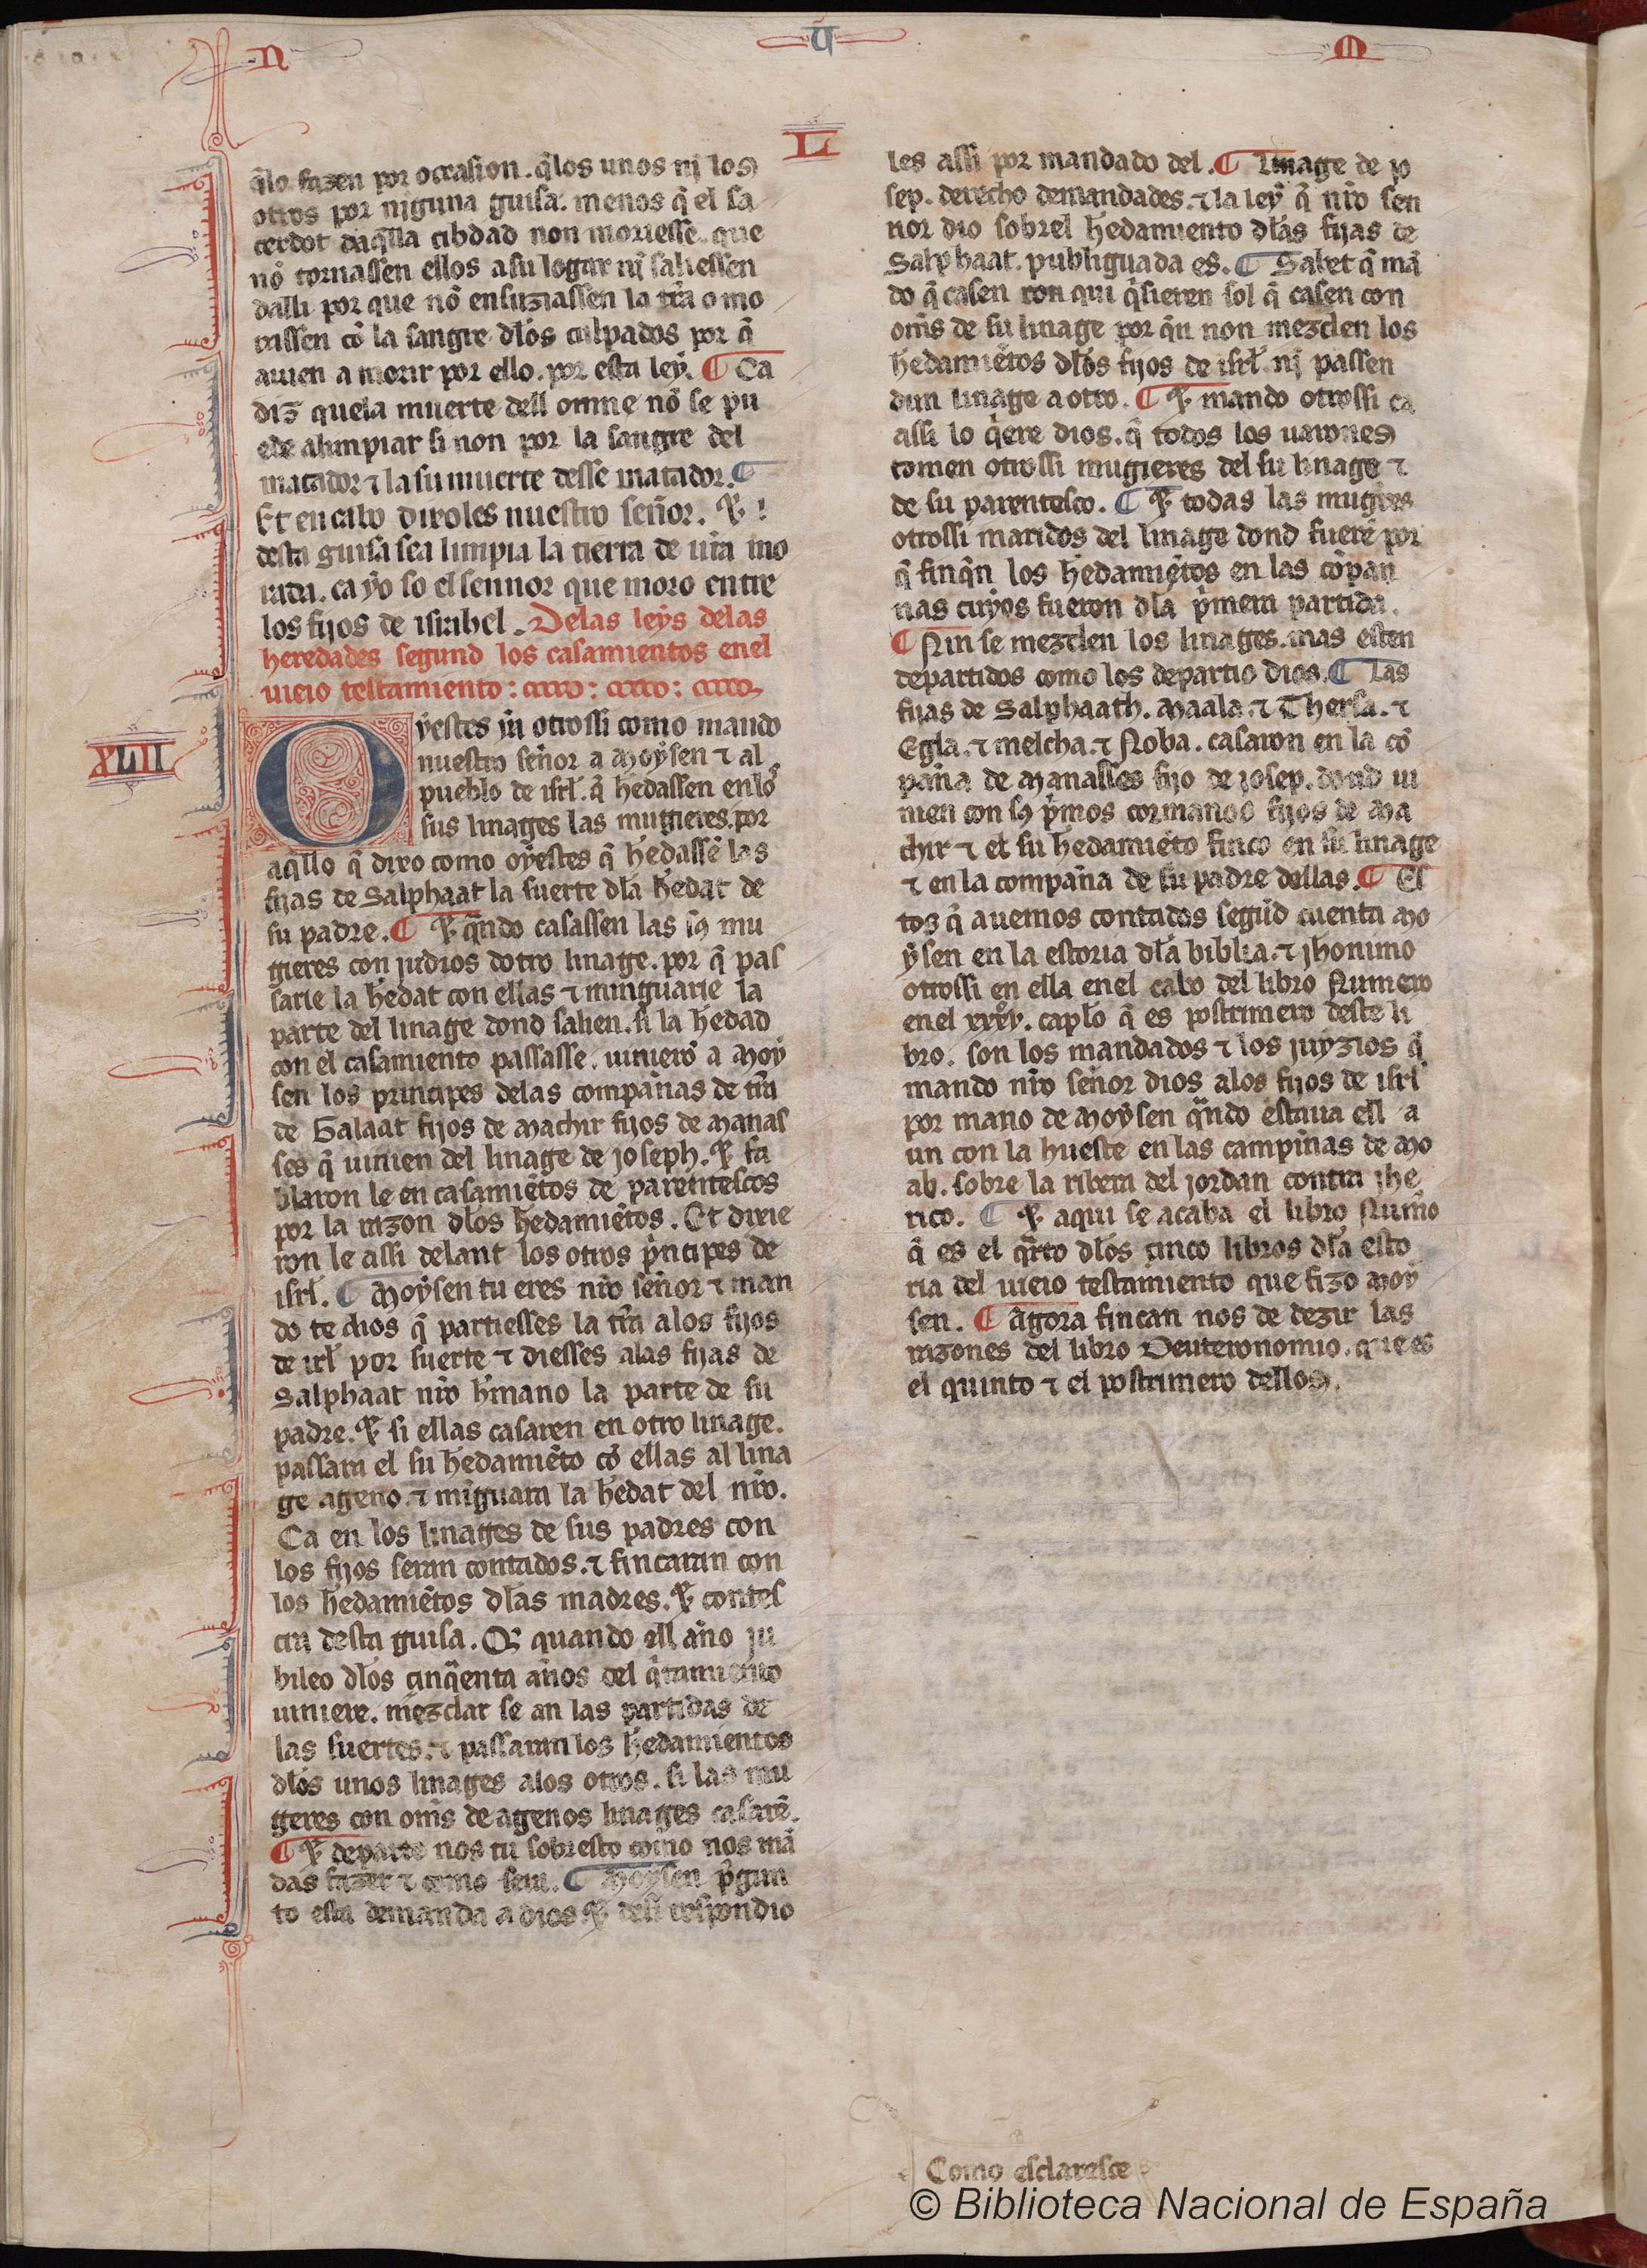 N U M
L
q̃lo fazen por occasion. q̃ los unos nj los
otros por njguna guisa. menos q̃ el sa
cerdot daq̃lla cibdad non moriesse. que
nõ tornassen ellos a su logar nj saliessen
dalli por que nõ ensuziassen la tr̃ra o mo
rassen cõ la sangre dl̃os culpados por q̃
auien a morir por ello. por esta ley. ¶ Ca
diz quela muerte dell omne nõ se pu
ede alimpiar si non por la sangre del
matador ⁊ la su muerte desse matador. ¶
Et en cabo dixoles nuestro señor. ⁊
desta guisa sea limpia la tierra de ur̃a mo
rada. ca yo so el sennor que moro entre
los fijos de israhel. Delas leys delas
heredades segund los casamientos enel
uieio testamiento:
XLII
Oyestes ya otrossi como mando
nuestro señor a Moysen ⁊ al
pueblo de isrl̃. q̃ hedassen enlo
sus linages las mugieres. por
aq̃llo q̃ dixo como oyestes q̃ hedassẽ las
fijas de Salphaat la suerte dl̃a hedat de
su padre. ¶ ⁊ q̃ndo casassen las sus mu
gieres con judios dotro linage. por q̃ pas
sarie la hedat con ellas ⁊ minguarie la
parte del linage dond salien. si la hedad
con el casamiento passasse. uinierõ a Moy
sen los principes delas compañas de tr̃ra
de Galaat fijos de Machir fijos de Manas
ses q̃ uinien del linage de Joseph. ⁊ fa
blaron le en casamiẽtos de parentescos
por la razon dl̃os hedamiẽtos. Et dixie
ron le assi delant los otros p̃ncipes de
isrl̃. ¶ Moysen tu eres nr̃o señor ⁊ man
do te dios q̃ partiesses la tr̃ra alos fijos
de irl̃ por suerte ⁊ diesses alas fijas de
Salphaat nr̃o h̃mano la parte de su
padre. ⁊ si ellas casaren en otro linage.
passara el su hedamiẽto cõ ellas al lina
ge ageno. ⁊ mĩguara la hedat del nr̃o.
Ca en los linages de sus padres con
los fijos seran contados. ⁊ fincaran con
los hedamiẽtos dl̃as madres. ⁊ contes
cra desta guisa. Q̃ quando ell año ju
bileo dl̃os cinq̃enta años del q̃tamiento
uiniere. mezclar se an las partidas de
las suertes. ⁊ passaran los hedamientos
dl̃os unos linages alos otros. si las mu
geres con om̃s de agenos linages casarẽ.
¶ ⁊ departe nos tu sobresto como nos mã
das fazer ⁊ como sera. ¶ Moysen p̃gun
to esta demanda a dios ⁊ desi respondio
les assi por mandado del. ¶ Linage de jo
sep. derecho demandades. ⁊ la ley q̃ nr̃o sen
nor dio sobrel hedamiento dl̃as fijas de
Salphaat. publiguada es. ¶ Sabet q̃ mã
do q̃ casen con qui q̃sieren sol q̃ casen con
om̃s de su linage por q̃n non mezclen los
hedamiẽtos dl̃os fijos de isrl̃. nj passen
dun linage a otro. ¶ ⁊ mando otrossi ca
assi lo q̃ere dios. q̃ todos los uarones
tomen otrossi mugieres del su linage ⁊
de su parentesco. ¶ ⁊ todas las mugr̃es
otrossi maridos del linage dond fuerẽ por
q̃ finq̃n los hedamiẽtos en las cõpan
nas cuyos fueron dl̃a p̃mera partida.
¶ Nin se mezclen los linages. mas esten
departidos como los departio dios. ¶ Las
fijas de Salphaath. Maala. ⁊ Thersa. ⁊
Egla. ⁊ Melcha. ⁊ Noba. casaron en la cõ
paña de Manasses fijo de josep. dond ui
nien con sus p̃mos cormanos fijos de Ma
chir ⁊ el su hedamiẽto finco en su linage
⁊ en la compaña de su padre dellas. ¶ Es
tos q̃ auemos contados segũd cuenta Mo
ysen en la estoria dl̃a biblia. ⁊ jhonimo
otrossi en ella enel cabo del libro Numero
enel xxxv. capl̃o q̃ es postrimero deste li
bro. son los mandados ⁊ los juyzios q̃
mando nr̃o señor dios alos fijos de isrl̃
por mano de Moysen q̃ndo estaua ell a
un con la hueste en las campinas de Mo
ab. sobre la ribera del jordan contra jhe
rico. ¶ ⁊ aqui se acaba el libro Num̃o
q̃ es el q̃rto dl̃os cinco libros dl̃a esto
ria del uieio testamiento que fizo Moy
sen. ¶ Agora fincan nos de dezir las
razones del libro Deuteronomio. que es
el quinto ⁊ el postrimero dellos.
Como esclaresce
© Biblioteca Nacional de España